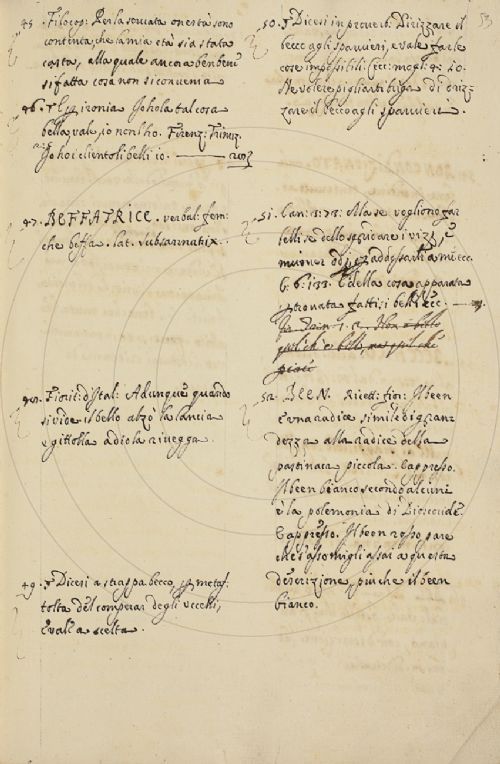 53
45. Filocop: Per la servata onestà sono
contenta, che la mia età sia stata
casta, alla quale ancora benbenu
sifatta cosa non si convenia
46. Per ironia Io ho la tal cosa
bella, vale, io non l'ho. Firenz: Trinuz.
Io ho i clientoli belli io.
47. BEFFATRICE. verbal: fem:
che beffa. lat. subsannatrix.
48. Fiorit: d'Ital: Adunque quando
si vide il bello alzò la lancia
e gittolla a dio la rivegga.
49. Dicesi a strappa becco, metaf:
tolta del comperar degli uccelli,
e vale a scelta.
50. Dicesi in proverb: Dirizzare il
becco agli sparvieri, e vale far le
cose impossibili. Cecc: mogl: 4: 20.
Ne volere pigliar briga di diriz-
zare il becco agli sparvieri.
51. Can: 373: Ma se vogliono far
belli se dello sgridare i vizi, e
addossarli a mi ecc.
G. 6. 133. E della cosa apparata
belli ecc.
Non è bello
quel ch'è bello, ma quel che
piace
52. BEEN. Ricett: fior: Il been
è una radice simile di gran-
dezza alla radice della
pastinaca piccola. E appresso.
Il been bianco secondo alcuni
è la polemonia di Dioscoride.
E appresso. Il been rosso pare
che s'assomigli assai a questa
descrizione, più che il been
bianco.